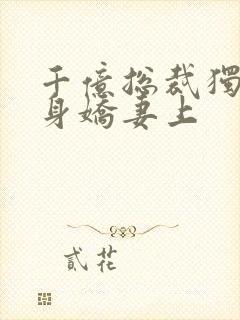 千億總裁獨
身嬌妻上
貳花